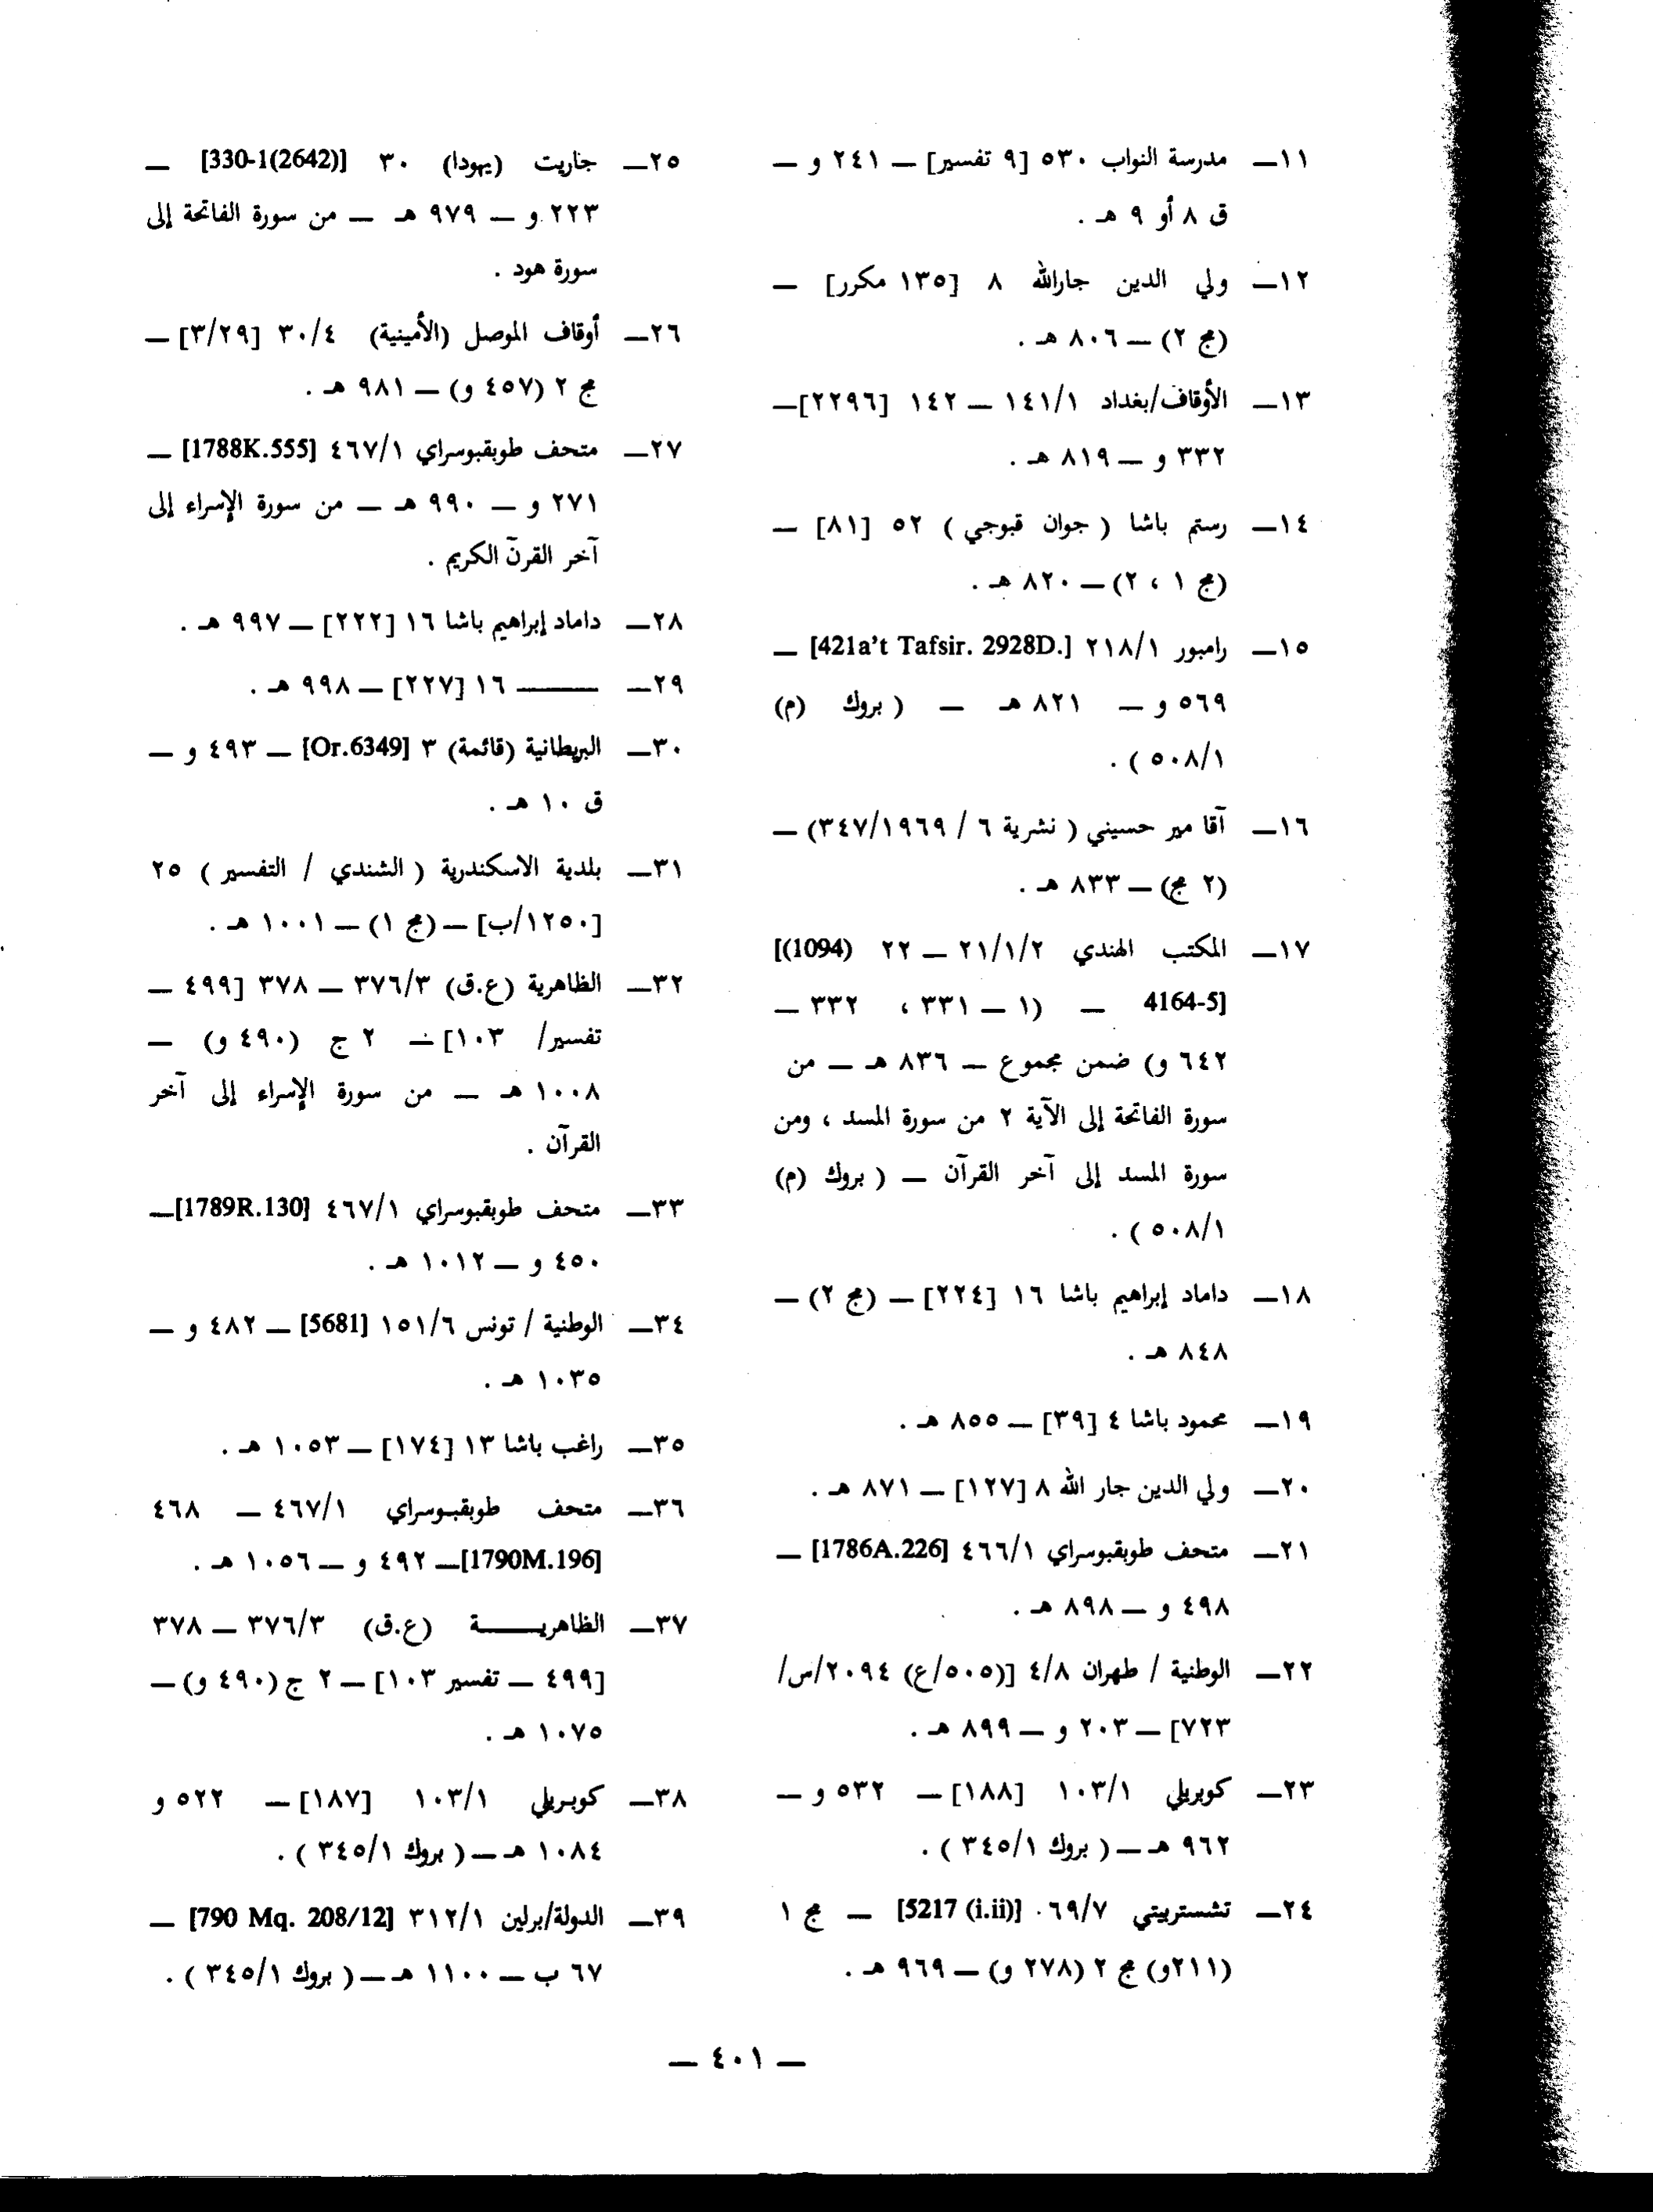 ١١— مدرسة النواب ٥٣٠ [٩ تفسير] — ٢٤١ و —
ق ٨ أو ٩ هـ .
١٢— ولي الدين جارالله ٨ [١٣٥ مكرر] —
(مج ٢) — ٨٠٦ هـ .
١٣— الأوقاف/بغداد ١٤١/١ — ١٤٢ [٢٢٩٦]—
٣٣٢ و — ٨١٩ هـ .
١٤— رستم باشا ( جوان قبوجي ) ٥٢ [٨١] —
(مج ١ ، ٢) — ٨٢٠ هـ .
١٥— رامبور ٢١٨/١ [421a't Tafsir. 2928D.] —
٥٦٩ و — ٨٢١ هـ — ( بروك (م)
٥٠٨/١ ) .
١٦— آقا مير حسيني ( نشرية ٦ / ٣٤٧/١٩٦٩) —
(٢ مج) — ٨٣٣ هـ .
١٧— المكتب الهندي ٢١/١/٢ — ٢٢ [(1094)
4164-5] — (١ — ٣٣١ ، ٣٣٢ —
٦٤٢ و) ضمن مجموع — ٨٣٦ هـ — من
سورة الفاتحة إلى الآية ٢ من سورة المسد ، ومن
سورة المسد إلى آخر القرآن — ( بروك (م)
٥٠٨/١ ) .
١٨— داماد إبراهيم باشا ١٦ [٢٢٤] — (مج ٢) —
٨٤٨ هـ .
١٩— محمود باشا ٤ [٣٩] — ٨٥٥ هـ .
٢٠— ولي الدين جار الله ٨ [١٢٧] — ٨٧١ هـ .
٢١— متحف طوبقبوسراي ٤٦٦/١ [1786A.226] —
٤٩٨ و — ٨٩٨ هـ .
٢٢— الوطنية / طهران ٤/٨ [(٥٠٥/ع) ٢٠٩٤/س/
٧٢٣] — ٢٠٣ و — ٨٩٩ هـ .
٢٣— كوبريلي ١٠٣/١ [١٨٨] — ٥٣٢ و —
٩٦٢ هـ — ( بروك ٣٤٥/١ ) .
٢٤— تشستربيتي ٦٩/٧ [5217 (i.ii)] — مج ١
(٢١١و) مج ٢ (٢٧٨ و) — ٩٦٩ هـ .
٢٥— جاريت (يهودا) ٣٠ [330-1(2642)] —
٢٢٣ و — ٩٧٩ هـ — من سورة الفاتحة إلى
سورة هود .
٢٦— أوقاف الموصل (الأمينية) ٣٠/٤ [٣/٢٩] —
مج ٢ (٤٥٧ و) — ٩٨١ هـ .
٢٧— متحف طوبقبوسراي ٤٦٧/١ [1788K.555] —
٢٧١ و — ٩٩٠ هـ — من سورة الإسراء إلى
آخر القرنّ الكريم .
٢٨— داماد إبراهيم باشا ١٦ [٢٢٢] — ٩٩٧ هـ .
٢٩— ——— ١٦ [٢٢٧] — ٩٩٨ هـ .
٣٠— البريطانية (قائمة) ٣ [Or.6349] — ٤٩٣ و —
ق ١٠ هـ .
٣١— بلدية الاسكندرية ( الشندي / التفسير ) ٢٥
[١٢٥٠/ب] — (مج ١) — ١٠٠١ هـ .
٣٢— الظاهرية (ع.ق) ٣٧٦/٣ — ٣٧٨ [٤٩٩ —
تفسير/ ١٠٣] — ٢ ج (٤٩٠ و) —
١٠٠٨ هـ — من سورة الإسراء إلى آخر
القرآن .
٣٣— متحف طوبقبوسراي ٤٦٧/١ [1789R.130]—
٤٥٠ و — ١٠١٢ هـ .
٣٤— الوطنية / تونس ١٥١/٦ [5681] — ٤٨٢ و —
١٠٣٥ هـ .
٣٥— راغب باشا ١٣ [١٧٤] — ١٠٥٣ هـ .
٣٦— متحف طوبقبوسراي ٤٦٧/١ — ٤٦٨
[1790M.196]— ٤٩٢ و — ١٠٥٦ هـ .
٣٧— الظاهريــــة (ع.ق) ٣٧٦/٣ — ٣٧٨
[٤٩٩ — تفسير ١٠٣] — ٢ ج (٤٩٠ و) —
١٠٧٥ هـ .
٣٨— كوبريلي ١٠٣/١ [١٨٧] — ٥٢٢ و
١٠٨٤ هـ — ( بروك ٣٤٥/١ ) .
٣٩— الدولة/برلين ٣١٢/١ [790 Mq. 208/12] —
٦٧ ب — ١١٠٠ هـ — ( بروك ٣٤٥/١ ) .
— ٤٠١ —